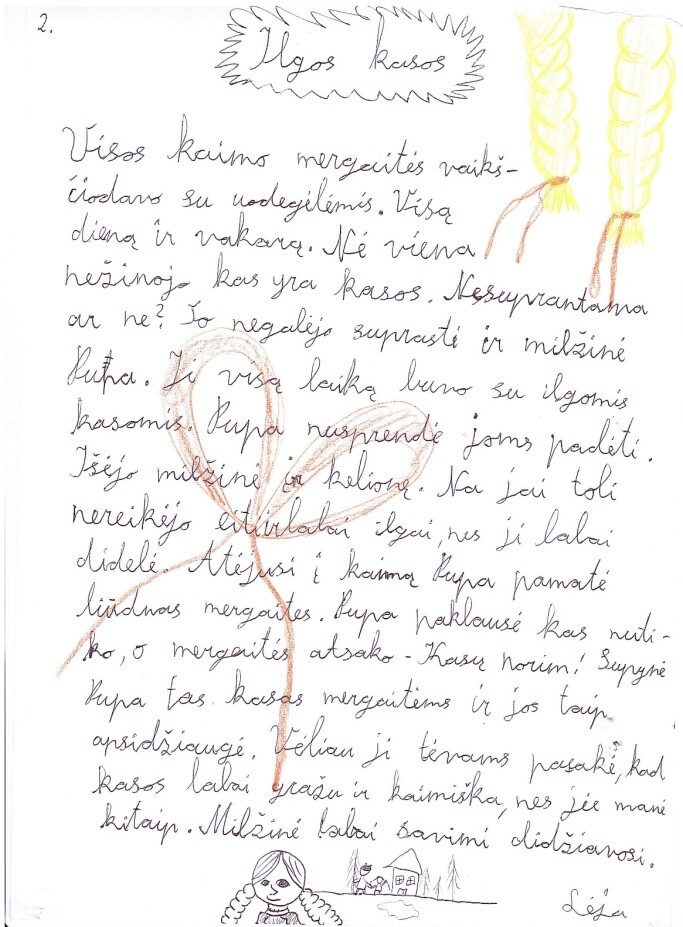 2.
Ilgos kasos
Visos kaimo mergaitės vaikš-
čiodavo su uodegėlėmis. Visą
dieną ir vakarą. Nė viena
nežinojo kas yra kasos. Nesuprantama
ar ne? To negalėjo suprasti ir milžinė
Pupa. Ji visą laiką buvo su ilgomis
kasomis. Pupa nusprendė joms padėti.
Išėjo milžinė į kelionę. Na jai toli
nereikėjo eiti ir labai ilgai, nes ji labai
didelė. Atėjusi į kaimą Pupa pamatė
liūdnas mergaites. Pupa paklausė kas nuti-
ko, o mergaitės atsako - Kasų norim! Supynė
Pupa tas kasas mergaitėms ir jos taip
apsidžiaugė. Vėliau ji tėvams pasakė, kad
kasos labai gražu ir kaimiška, nes jie manė
kitaip. Milžinė labai savimi didžiavosi.